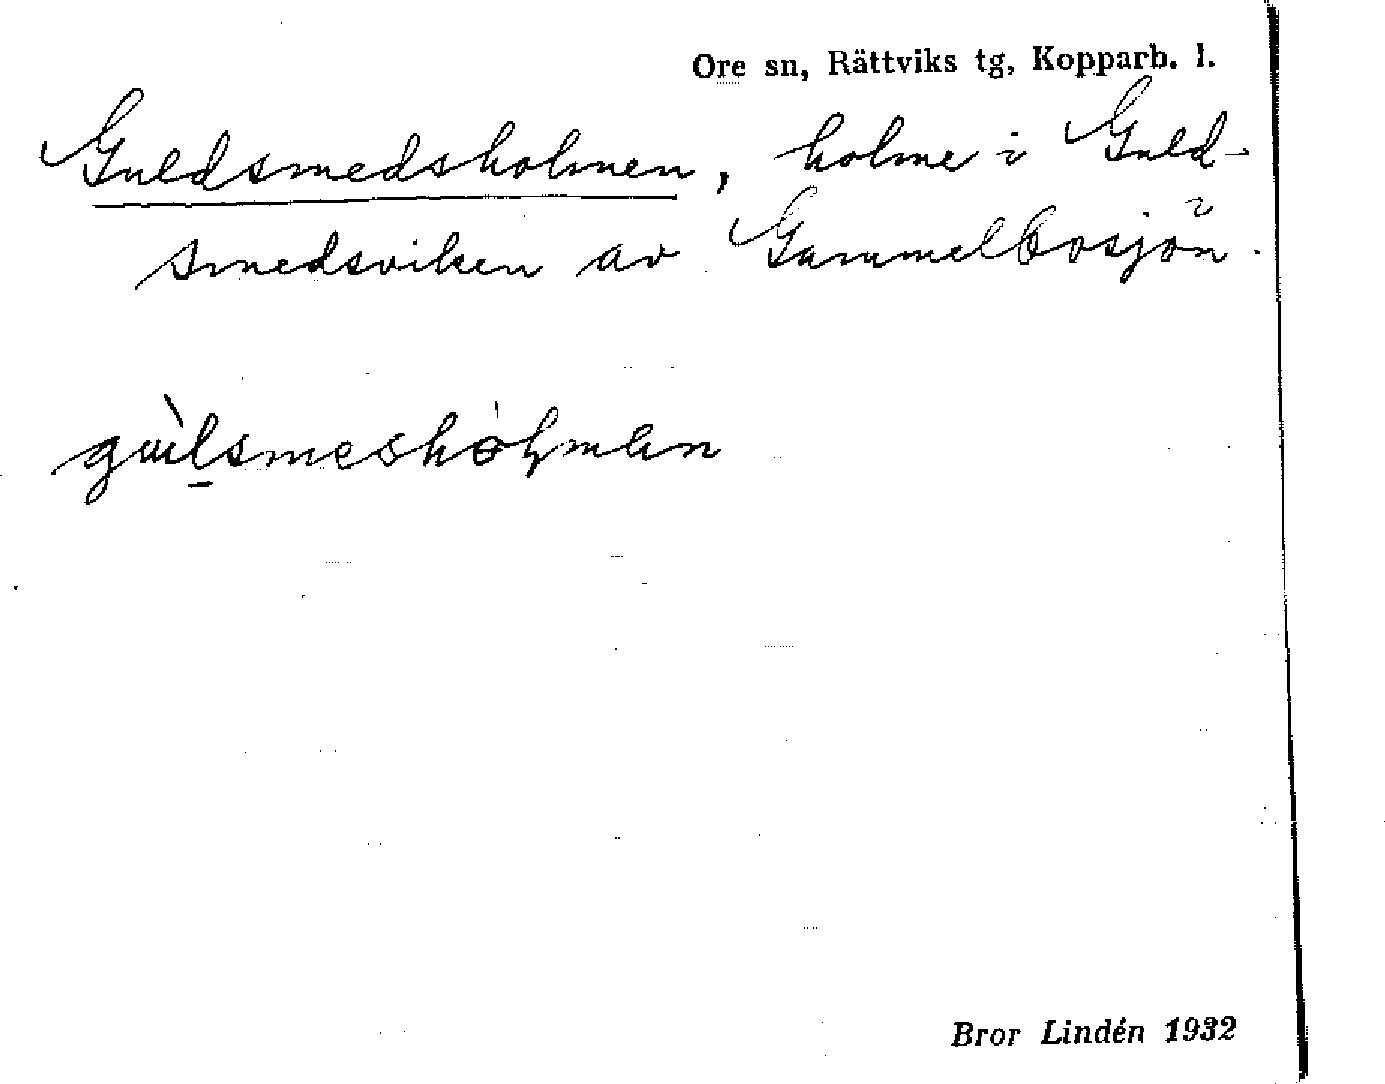 Ore sn, Rättviks tg, Kopparb. l.
Guldsmedsholmen, holme i Guld-
smedsviken av Gammelbosjön.
Bror Lindén 1932